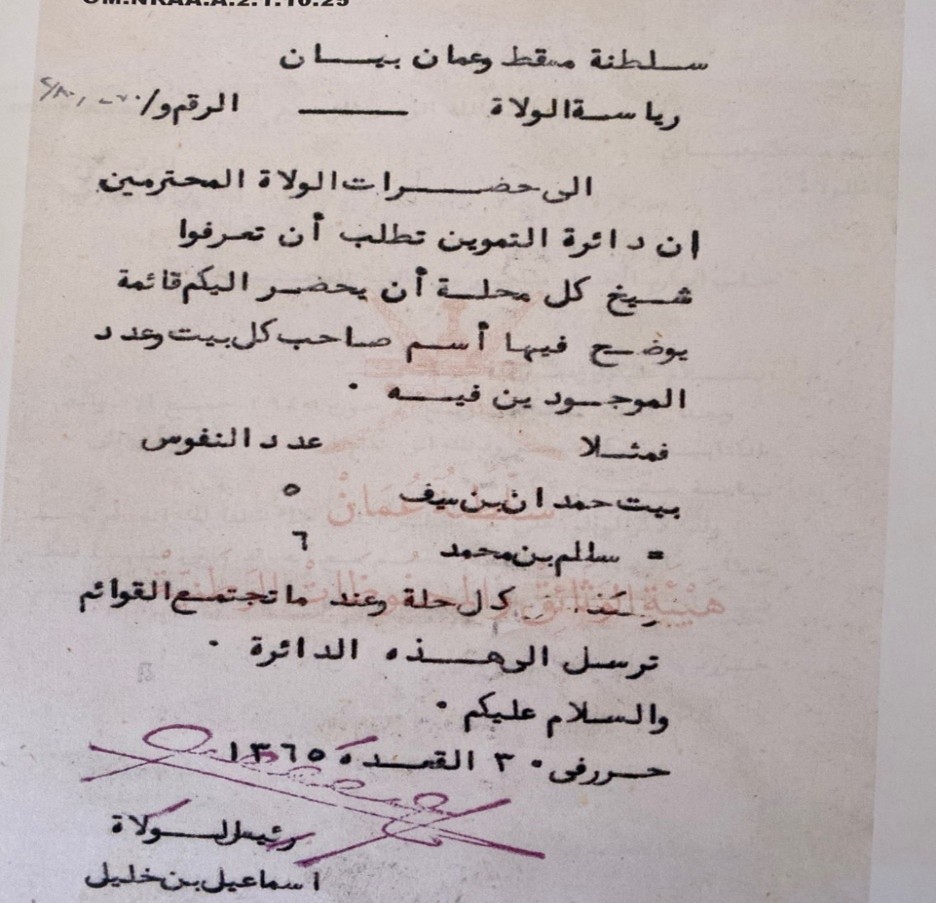 OM.NRAA.A.2.1.10.25
سلطنة مسقط وعمان بيان
رياسة الولاة الرقم و/
الى حضرات الولاة المحترمين
ان دائرة التموين تطلب أن تعرفوا
شيخ كل محلة أن يحضر اليكم قائمة
يوضح فيها أسم صاحب كل بيت وعدد
الموجودين فيه .
فمثلا عدد النفوس
بيت حمدان بن سيف ٥
= سالم بن محمد ٦
كل حلة وعند ما تجتمع القوائم
ترسل الى هذه الدائرة .
والسلام عليكم .
حرر فى ٣٠ القعده ١٣٦٥
رئيس الولاة
اسماعيل بن خليل
سلطنة عمان
هيئة الوثائق والمحفوظات الوطنية